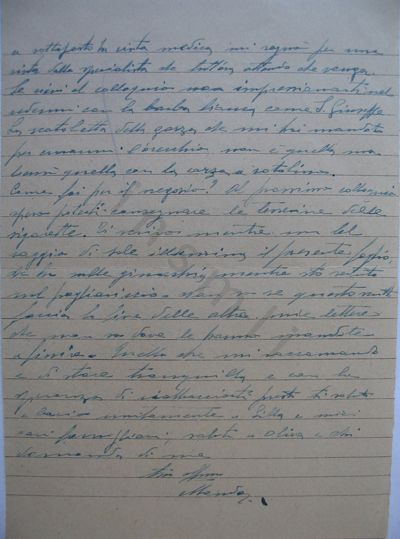 e sottoposto la visita medica mi segnò per una
visita dallo specialista da tutt'ora attendo che venga.
Se vieni al colloquio non impressionarti nel
vedermi con la barba bianca come S. Giuseppe
La scatoletta della garza che mi hai mandato
per l'occhio non è quella ma
bensì quella con la garza a rotolino.
Come fai per il negozio? Al prossimo colloquio
spero poterti consegnare le
sigarette. Ti scrivo mentre un bel
raggio di sole illumina il presente foglio,
sulle ginocchia mentre sto seduto
sul pagliericcio. non so se questo
faccia la fine delle altre mie lettere
che non so dove le hanno mandate
a finire. Quello che mi raccomando
è di stare tranquilla e con la
speranza di riabbracciarti presto ti saluto
e bacio unitamente a e miei
cari famigliari, saluti a Oliva e chi
domanda di me
tuo